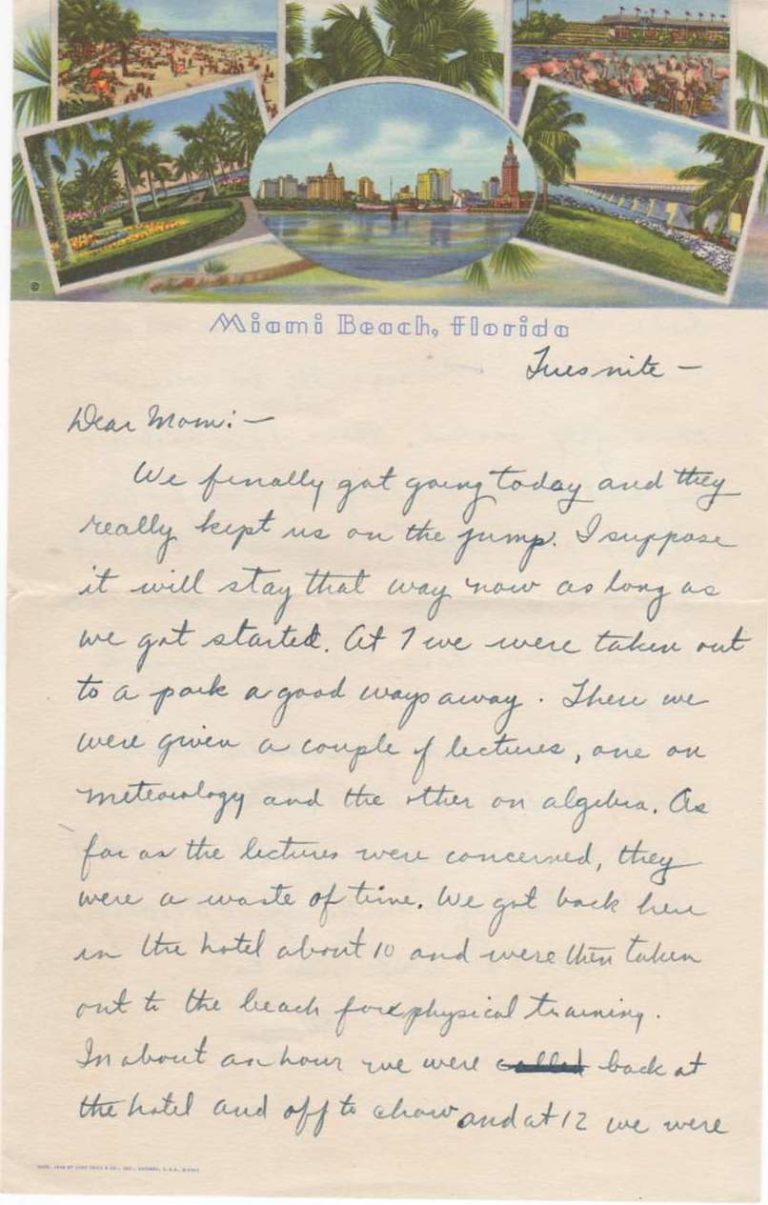 Miami Beach, Florida
Tues nite –
Dear Mom: –
We finally got going today and they
really kept us on the jump. I suppose
it will stay that way now as long as
we got started. At 7 we were taken out
to a park a good ways away. There we
were given a couple of lectures, one on
meteorology and the other on algebra. As
far as the lectures were concerned, they
were a waste of time. We got back here
in the hotel about 10 and were then taken
out to the beach for physical training.
In about an hour we were called back at
the hotel and off to chow and at 12 we were